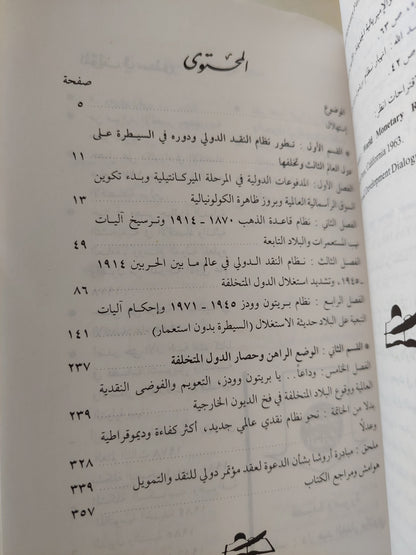 المحتوى
الموضوع
صفحة
إستهلال
٥
* القسم الأول : تطور نظام النقد الدولي ودوره في السيطرة على
دول العالم الثالث وتخلفها
١١
الفصل الأول : المدفوعات الدولية في المرحلة الميركانتيلية وبدء تكوين
السوق الرأسمالية العالمية وبروز ظاهرة الكولونيالية
١٣
الفصل الثاني : نظام قاعدة الذهب ١٨٧٠ - ١٩١٤ وترسيخ آليات
نهب المستعمرات والبلاد التابعة
٤٩
الفصل الثالث : نظام النقد الدولي في عالم ما بين الحربين ١٩١٤
- ١٩٤٥، وتشديد استغلال الدول المتخلفة
٨٦
الفصل الرابع : نظام بريتون وودز ١٩٤٥ - ١٩٧١ وإحكام آليات
التبعية على البلاد حديثة الاستغلال (السيطرة بدون استعمار)
١٤١
* القسم الثاني : الوضع الراهن وحصار الدول المتخلفة
٢٣٧
الفصل الخامس : وداعاً . . يا بريتون وودز، التعويم والفوضى النقدية
العالمية ووقوع البلاد المتخلفة في فخ الديون الخارجية
٢٣٩
بدلا من الخاتمة : نحو نظام نقدي عالمي جديد، أكثر كفاءة وديموقراطية
وعدلًا
٣٢٨
ملحق : مبادرة أروشا بشأن الدعوة لعقد مؤتمر دولي للنقد والتمويل
٣٣٩
هوامش ومراجع الكتاب
٣٥٧
ص ٢٣
٤٢
Monetary
California 1963.
Development Dialog